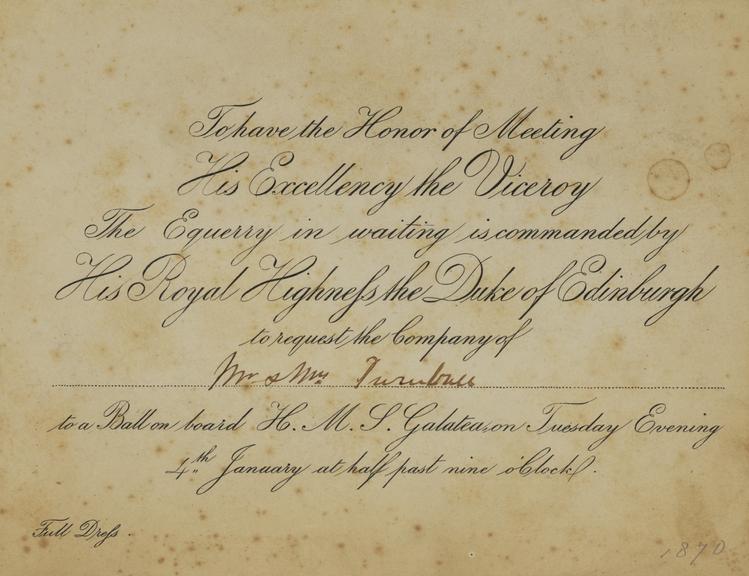 To have the Honor of Meeting
His Excellency the Viceroy
The Equerry in waiting is commanded by
His Royal Highneſs the Duke of Edinburgh
to request the Company of
Mr & Mrs Turnbull
to a Ball on board H. M. S. Galatea, on Tuesday Evening
4th January at half past nine o'Clock.
Full Dreſs.
1870